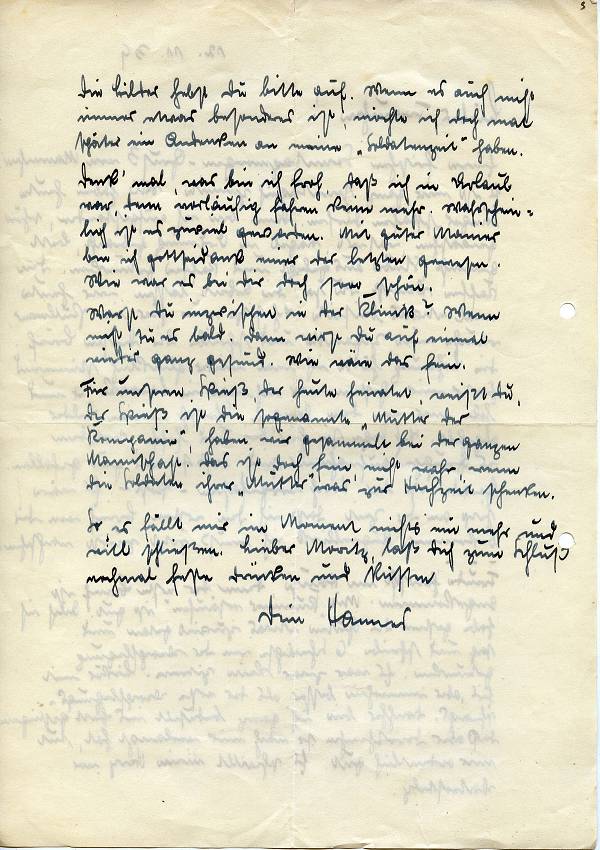 Die Bilder hebst Du bitte auf. Wenn es auch nicht
immer etwas besonderes ist, möchte ich doch mal
später ein Andenken an meine „Soldatenzeit" haben.
Denk' mal, was bin ich froh, daß ich in Urlaub
war, denn vorläufig fahren keine mehr. Wahrschein=
lich ist es zuviel geworden. Mit guter Manier
bin ich gottseidank einer der letzten gewesen.
Wie war es bei Dir doch sooo schön.
Warst Du inzwischen in der Klinik? Wenn
nicht tu es bald. Dann wirst Du auf einmal
wieder ganz gesund. Wie wäre das fein.
Für unseren Spieß der heute heiratet, weißt Du,
der Spieß ist die sogenannte „Mutter der
Kompanie", haben wir gesammelt bei der ganzen
Mannschaft. Das ist doch fein, nicht wahr, wenn
die Soldaten ihrer „Mutter" was zur Hochzeit schenken.
So es fällt mir im Moment nichts mehr und
will schließen. Lieber Moritz, laß Dich zum Schluß
nochmal feste drücken und küssen
Dein Hannes